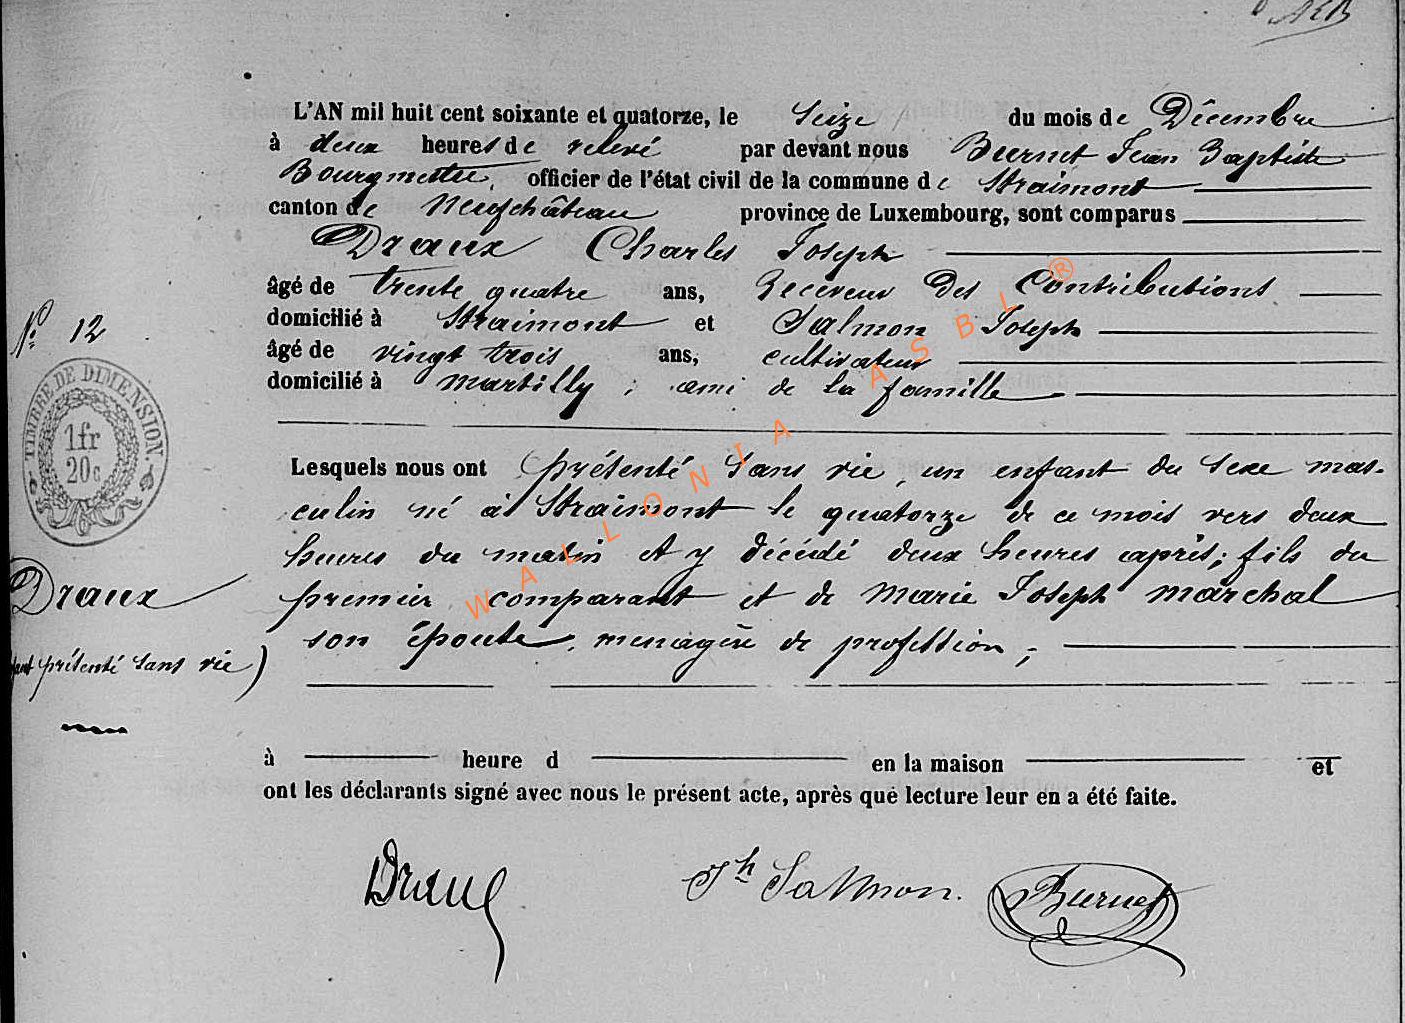 L'AN mil huit cent soixante et quatorze, le Seize du mois de Décembre
à deux heures de relevé par devant nous Burnet Jean Baptiste
Bourgmestre, officier de l'état civil de la commune de Straimont
canton de Neufchâteau province de Luxembourg, sont comparus
Draux Charles Joseph
âgé de trente quatre ans, Receveur des Contributions
domicilié à Straimont et Salmon Joseph
âgé de vingt trois ans, cultivateur
domicilié à Martilly, ami de la famille
N° 12
TIMBRE DE DIMENSION.
1fr
20c
Lesquels nous ont présenté sans vie, un enfant du sexe mas-
culin né à Straimont le quatorze de ce mois vers deux
heures du matin et y décédé deux heures après; fils du
Draux
premier comparant et de Marie Joseph Marchal
son épouse, menagère de profession;
présenté sans vie)
à heure d en la maison et
ont les déclarants signé avec nous le présent acte, après que lecture leur en a été faite.
Draux
Jh Salmon.
Burnet
WALLONIA ASBL ®